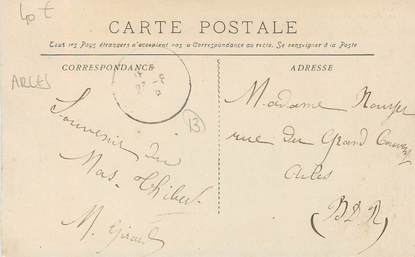 40 €
CARTE POSTALE
Tous les Pays étrangers n'acceptent pas la Correspondance au recto. Se renseigner à la Poste
CORRESPONDANCE
ADRESSE
ARLES
13
Souvenir du
Mas-Thibert
M. Girard
Madame
rue du Grand Couvent
Arles
(B D R)